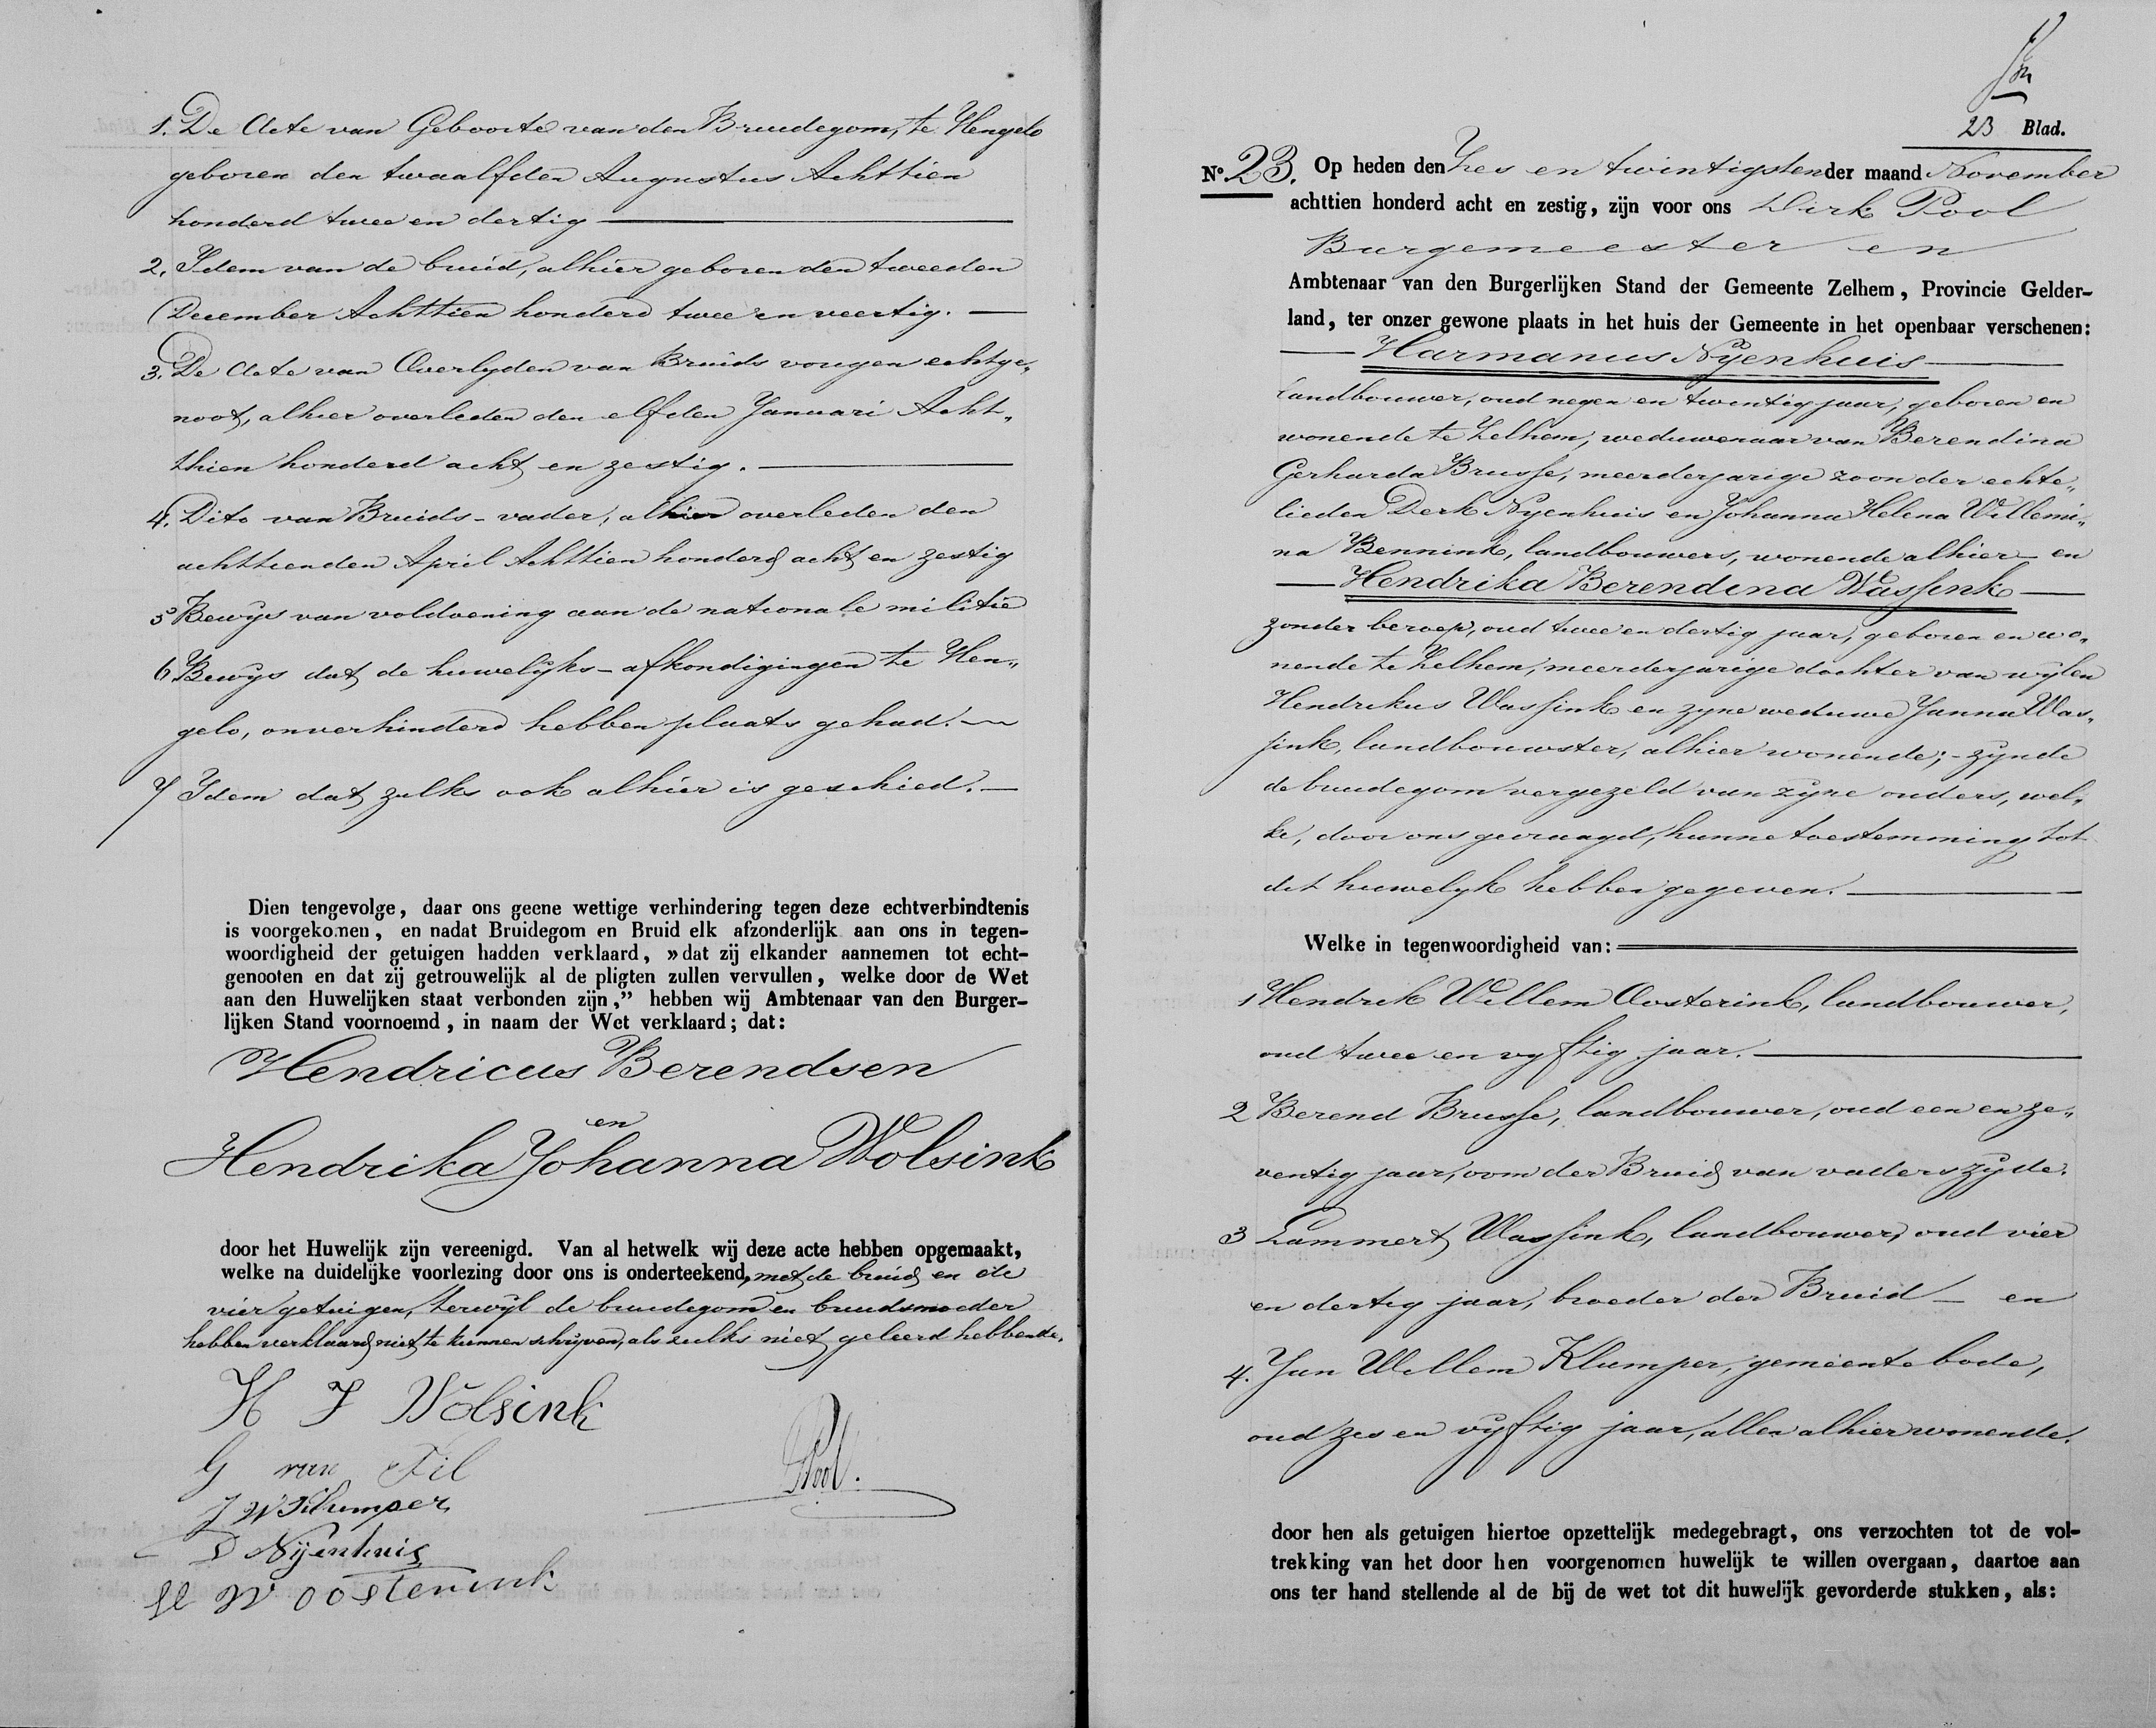 1. De Acte van Geboorte van den Bruidegom, te Hengelo
geboren den twaalfden Augustus Achttien
honderd twee en dertig
2. Idem van de bruid, alhier geboren den tweeden
December Achttien honderd twee en veertig.
3. De Acte van Overlyden van Bruids vorigen echtge„
noot, alhier overleden den elfden Januari Acht„
thien honderd acht en zestig.
4. Dito van Bruids-vader, alhier overleden den
achttienden April Achttien honderd acht en zestig
5 Bewys van voldoening aan de nationale militie
6 Bewys dat de huwelyks-afkondigingen te Hen„
gelo, onverhinderd hebben plaats gehad.
7 Idem dat zulks ook alhier is geschied.
Dien tengevolge, daar ons geene wettige verhindering tegen deze echtverbindtenis
is voorgekomen, en nadat Bruidegom en Bruid elk afzonderlijk aan ons in tegen-
woordigheid der getuigen hadden verklaard, »dat zij elkander aannemen tot echt-
genooten en dat zij getrouwelijk al de pligten zullen vervullen, welke door de Wet
aan den Huwelijken staat verbonden zijn,” hebben wij Ambtenaar van den Burger-
lijken Stand voornoemd, in naam der Wet verklaard; dat:
Hendricus Berendsen
en
Hendrika Johanna Wolsink
door het Huwelijk zijn vereenigd. Van al hetwelk wij deze acte hebben opgemaakt,
welke na duidelijke voorlezing door ons is onderteekend, met de bruid en de
vier getuigen, terwyl de bruidegom en bruidsmoeder
hebben verklaard niet te kunnen schryven, als zulks niet geleerd hebbende.
H J Wolsink
G van Til
Pool.
J W Klumper
D Nijenhuis
H W Oosterink
23 Blad.
No. 23. Op heden den Zes en twintigsten der maand November
achttien honderd acht en zestig, zijn voor ons Dirk Pool
Burgemeester en
Ambtenaar van den Burgerlijken Stand der Gemeente Zelhem, Provincie Gelder-
land, ter onzer gewone plaats in het huis der Gemeente in het openbaar verschenen:
Harmanus Nyenhuis
landbouwer, oud negen en twintig jaar, geboren en
wonende te Zelhem, weduwenaar van Berendina
Gerharda Brusse, meerderjarige zoon der echte„
lieden Derk Nyenhuis en Johanna Helena Willemi„
na Bennink, landbouwers, wonende alhier - en
Hendrika Berendina Wassink
zonder beroep, oud twee en dertig jaar, geboren en wo„
nende te Zelhem, meerderjarige dochter van wylen
Hendrikus Wassink en zyne weduwe Janna Was„
sink, landbouwster, alhier wonende; - zynde
de bruidegom vergezeld van zyne ouders, wel„
ke, door ons gevraagd, hunne toestemming tot
dit huwelyk hebben gegeven.
Welke in tegenwoordigheid van:
1 Hendrik Willem Oosterink, landbouwer,
oud twee en vyftig jaar.
2 Berend Brusse, landbouwer, oud een en ze„
ventig jaar, oom der Bruid van vaders zyde.
3 Lammert Wassink, landbouwer, oud vier
en dertig jaar, broeder der Bruid - en
4. Jan Willem Klumper, gemeente bode,
oud zes en vyftig jaar, allen alhier wonende.
door hen als getuigen hiertoe opzettelijk medegebragt, ons verzochten tot de vol-
trekking van het door hen voorgenomen huwelijk te willen overgaan, daartoe aan
ons ter hand stellende al de bij de wet tot dit huwelijk gevorderde stukken, als: